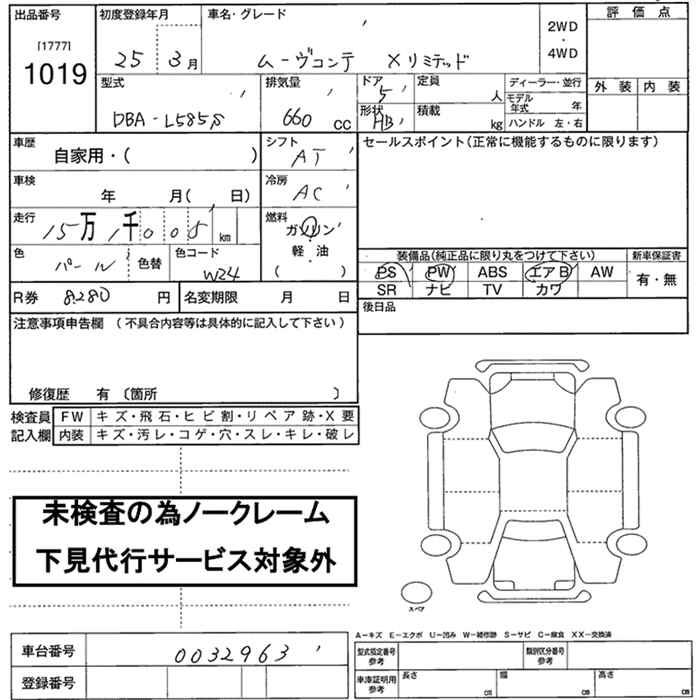 出品番号 初度登録年月 車名・グレード 評価点
[1777]
1019
25 3月 ムーヴコンテ Xリミテッド
2WD
・
4WD
外装 内装
型式 排気量 ドア 定員 ディーラー・並行
DBA-L585S 660 cc 5 人 モデル年式 年
形状 積載
HB kg ハンドル 左・右
車歴 自家用・( ) シフト AT
セールスポイント(正常に機能するものに限ります)
車検 年 月( 日) 冷房 AC
走行 15万1千005km 燃料 ガソリン
・
軽・油
( )
色 パール 色替 色コード W24
装備品(純正品に限り丸をつけて下さい) 新車保証書
PS PW ABS エアB AW 有・無
SR ナビ TV カワ
R券 8280円 名変期限 月 日
後日品
注意事項申告欄 (不具合内容等は具体的に記入して下さい)
修復歴 有 〔箇所 〕
検査員 FW キズ・飛石・ヒビ割・リペア跡・X要
記入欄 内装 キズ・汚レ・コゲ・穴・スレ・キレ・破レ
未検査の為ノークレーム
下見代行サービス対象外
スペア
A－キズ E－エクボ U－凹み W－補修跡 S－サビ C－腐食 XX－交換済
車台番号 0032963
型式指定番号 参考 類別区分番号 参考
登録番号
車庫証明用 参考 長さ cm 幅 cm 高さ cm